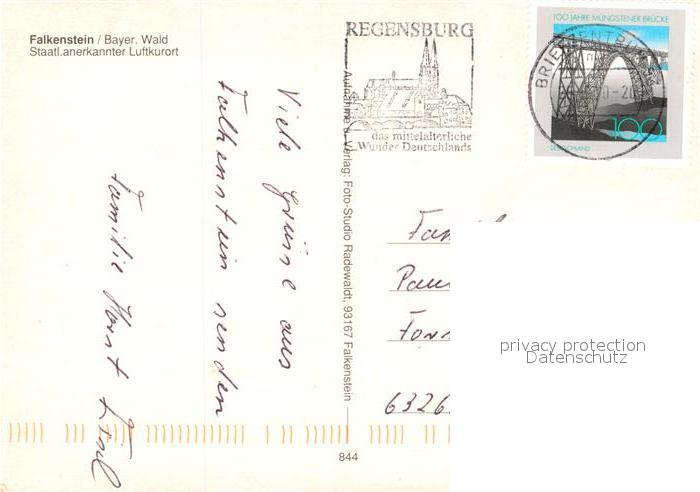 Falkenstein / Bayer. Wald
Staatl.anerkannter Luftkurort
REGENSBURG
das mittelalterliche
Wunder Deutschlands
100 JAHRE MÜNGSTENER BRÜCKE
100
DEUTSCHLAND
BRIEFZENTRUM
Viele Grüße aus
Falkenstein senden
Familie Horst
Aufnahme u. Verlag: Foto-Studio Radewaldt, 93167 Falkenstein
Fam
Pau
6326
privacy protection
Datenschutz
844